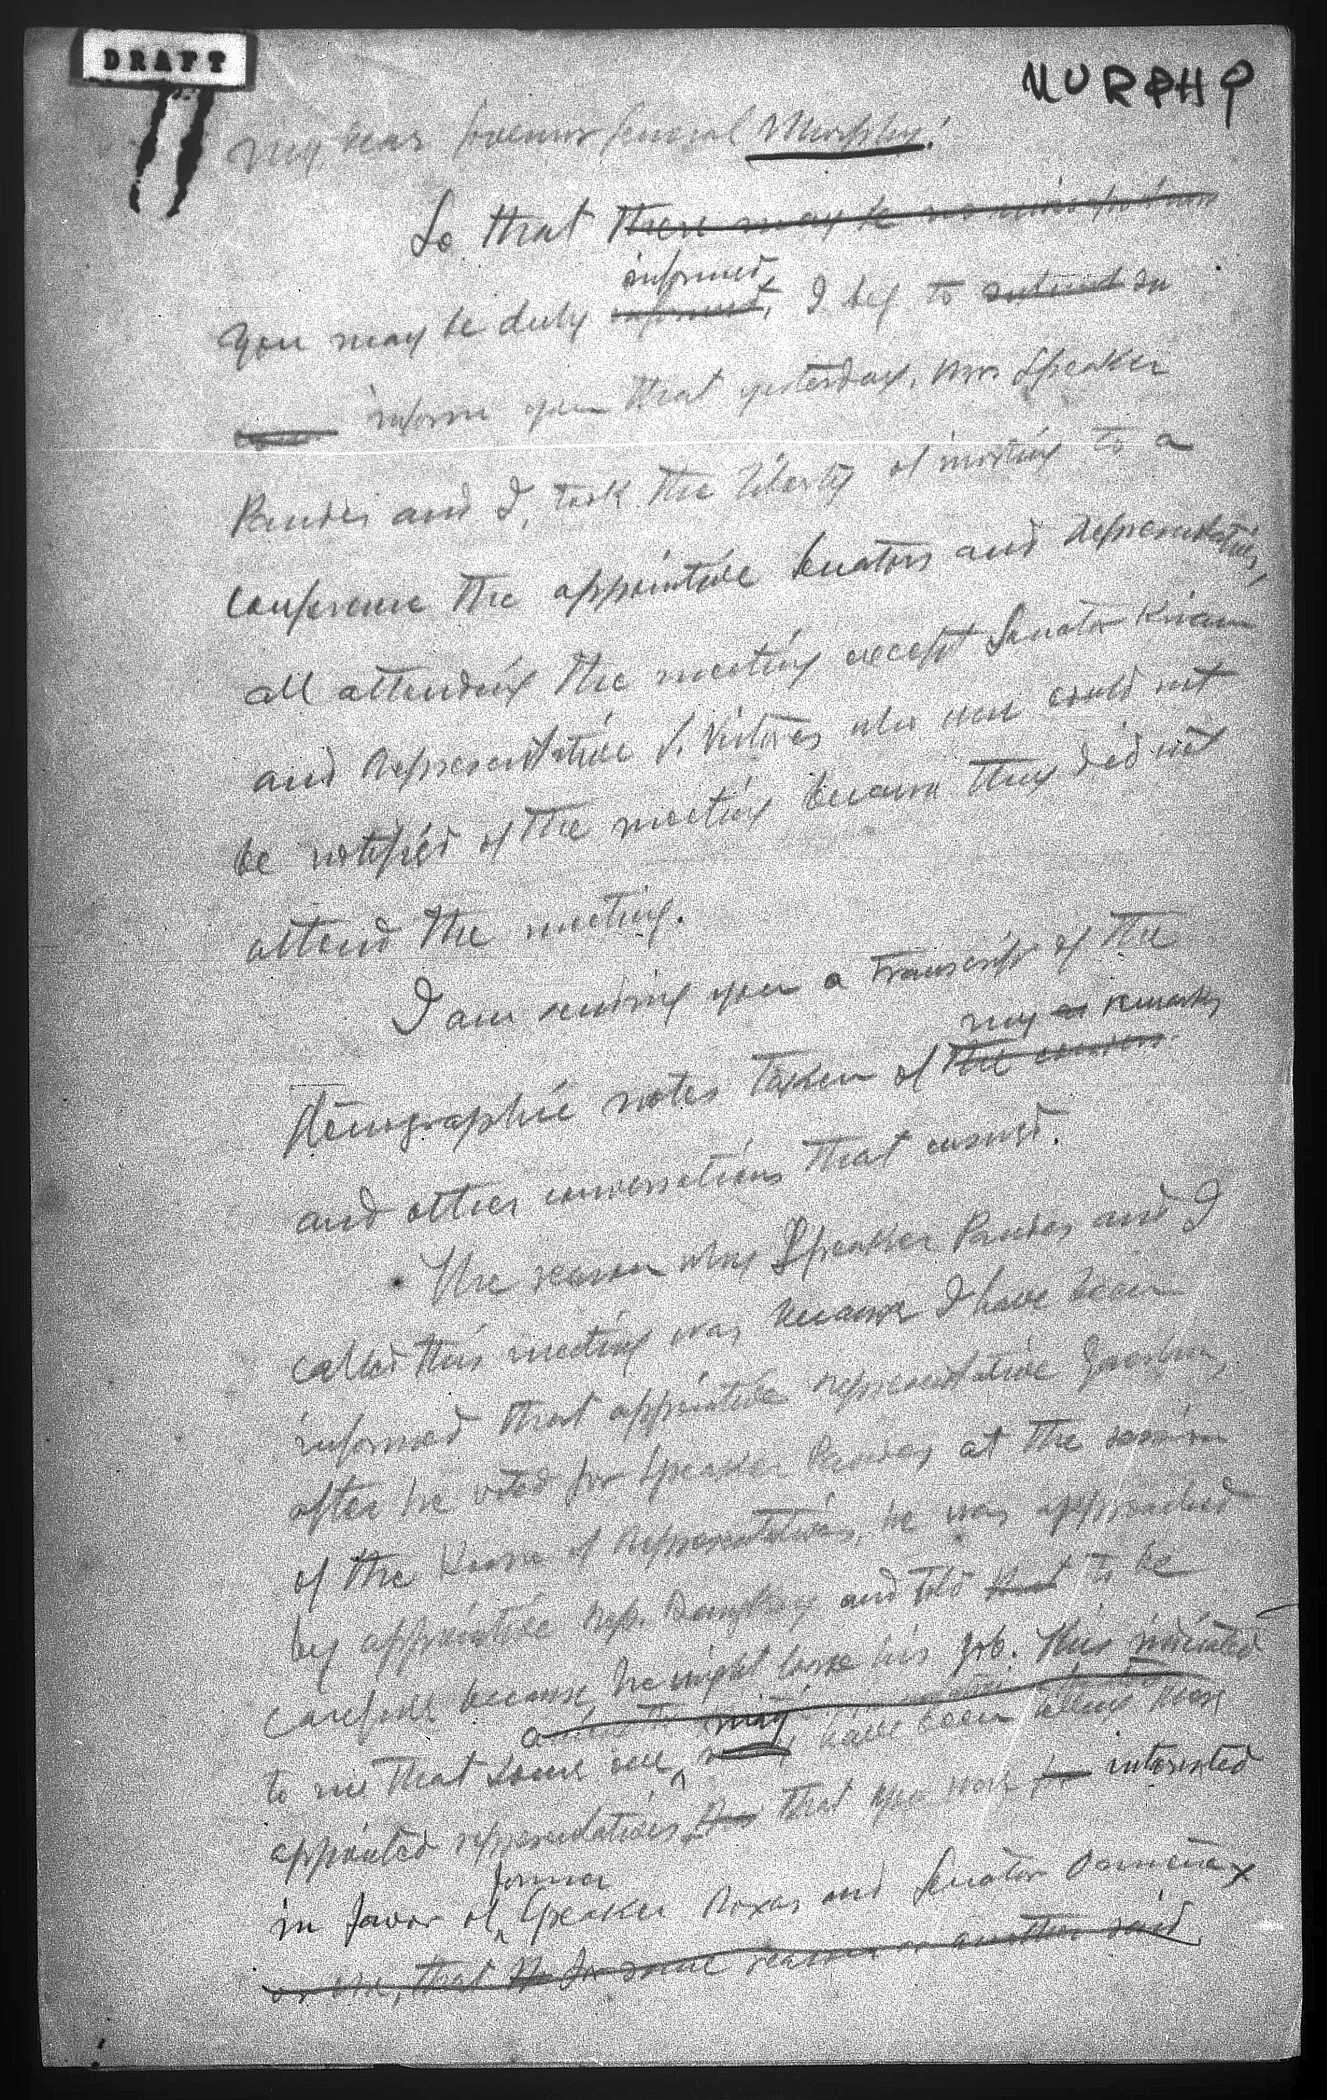 DRAFT
MURPHY
My dear Governor General Murphy:
So that there may be no
informed
you may be duly informed, I beg to in
inform you that yesterday, Mr. Speaker
Paredes and I, took the liberty of inviting to a
conference the appointive Senators and Representatives,
all attending the meeting except Senator
and Representative who could not
be notified of the meeting because they did not
attend the meeting.
I am sending you a transcript of the
my remarks
stenographic notes taken of the
and other conversations that ensued.
The reason why Speaker Paredes and I
called this meeting was because I have been
informed that appointive representative
after he voted for Speaker Paredes at the session
of the House of Representatives, he was approached
by appointive Rep. and told that to be
careful because he might loose his job. This indicated
to me that some one may have been telling these
appointed representatives that you were interested
former
in favor of Speaker Roxas and Senator
or one, that for some reason or another said